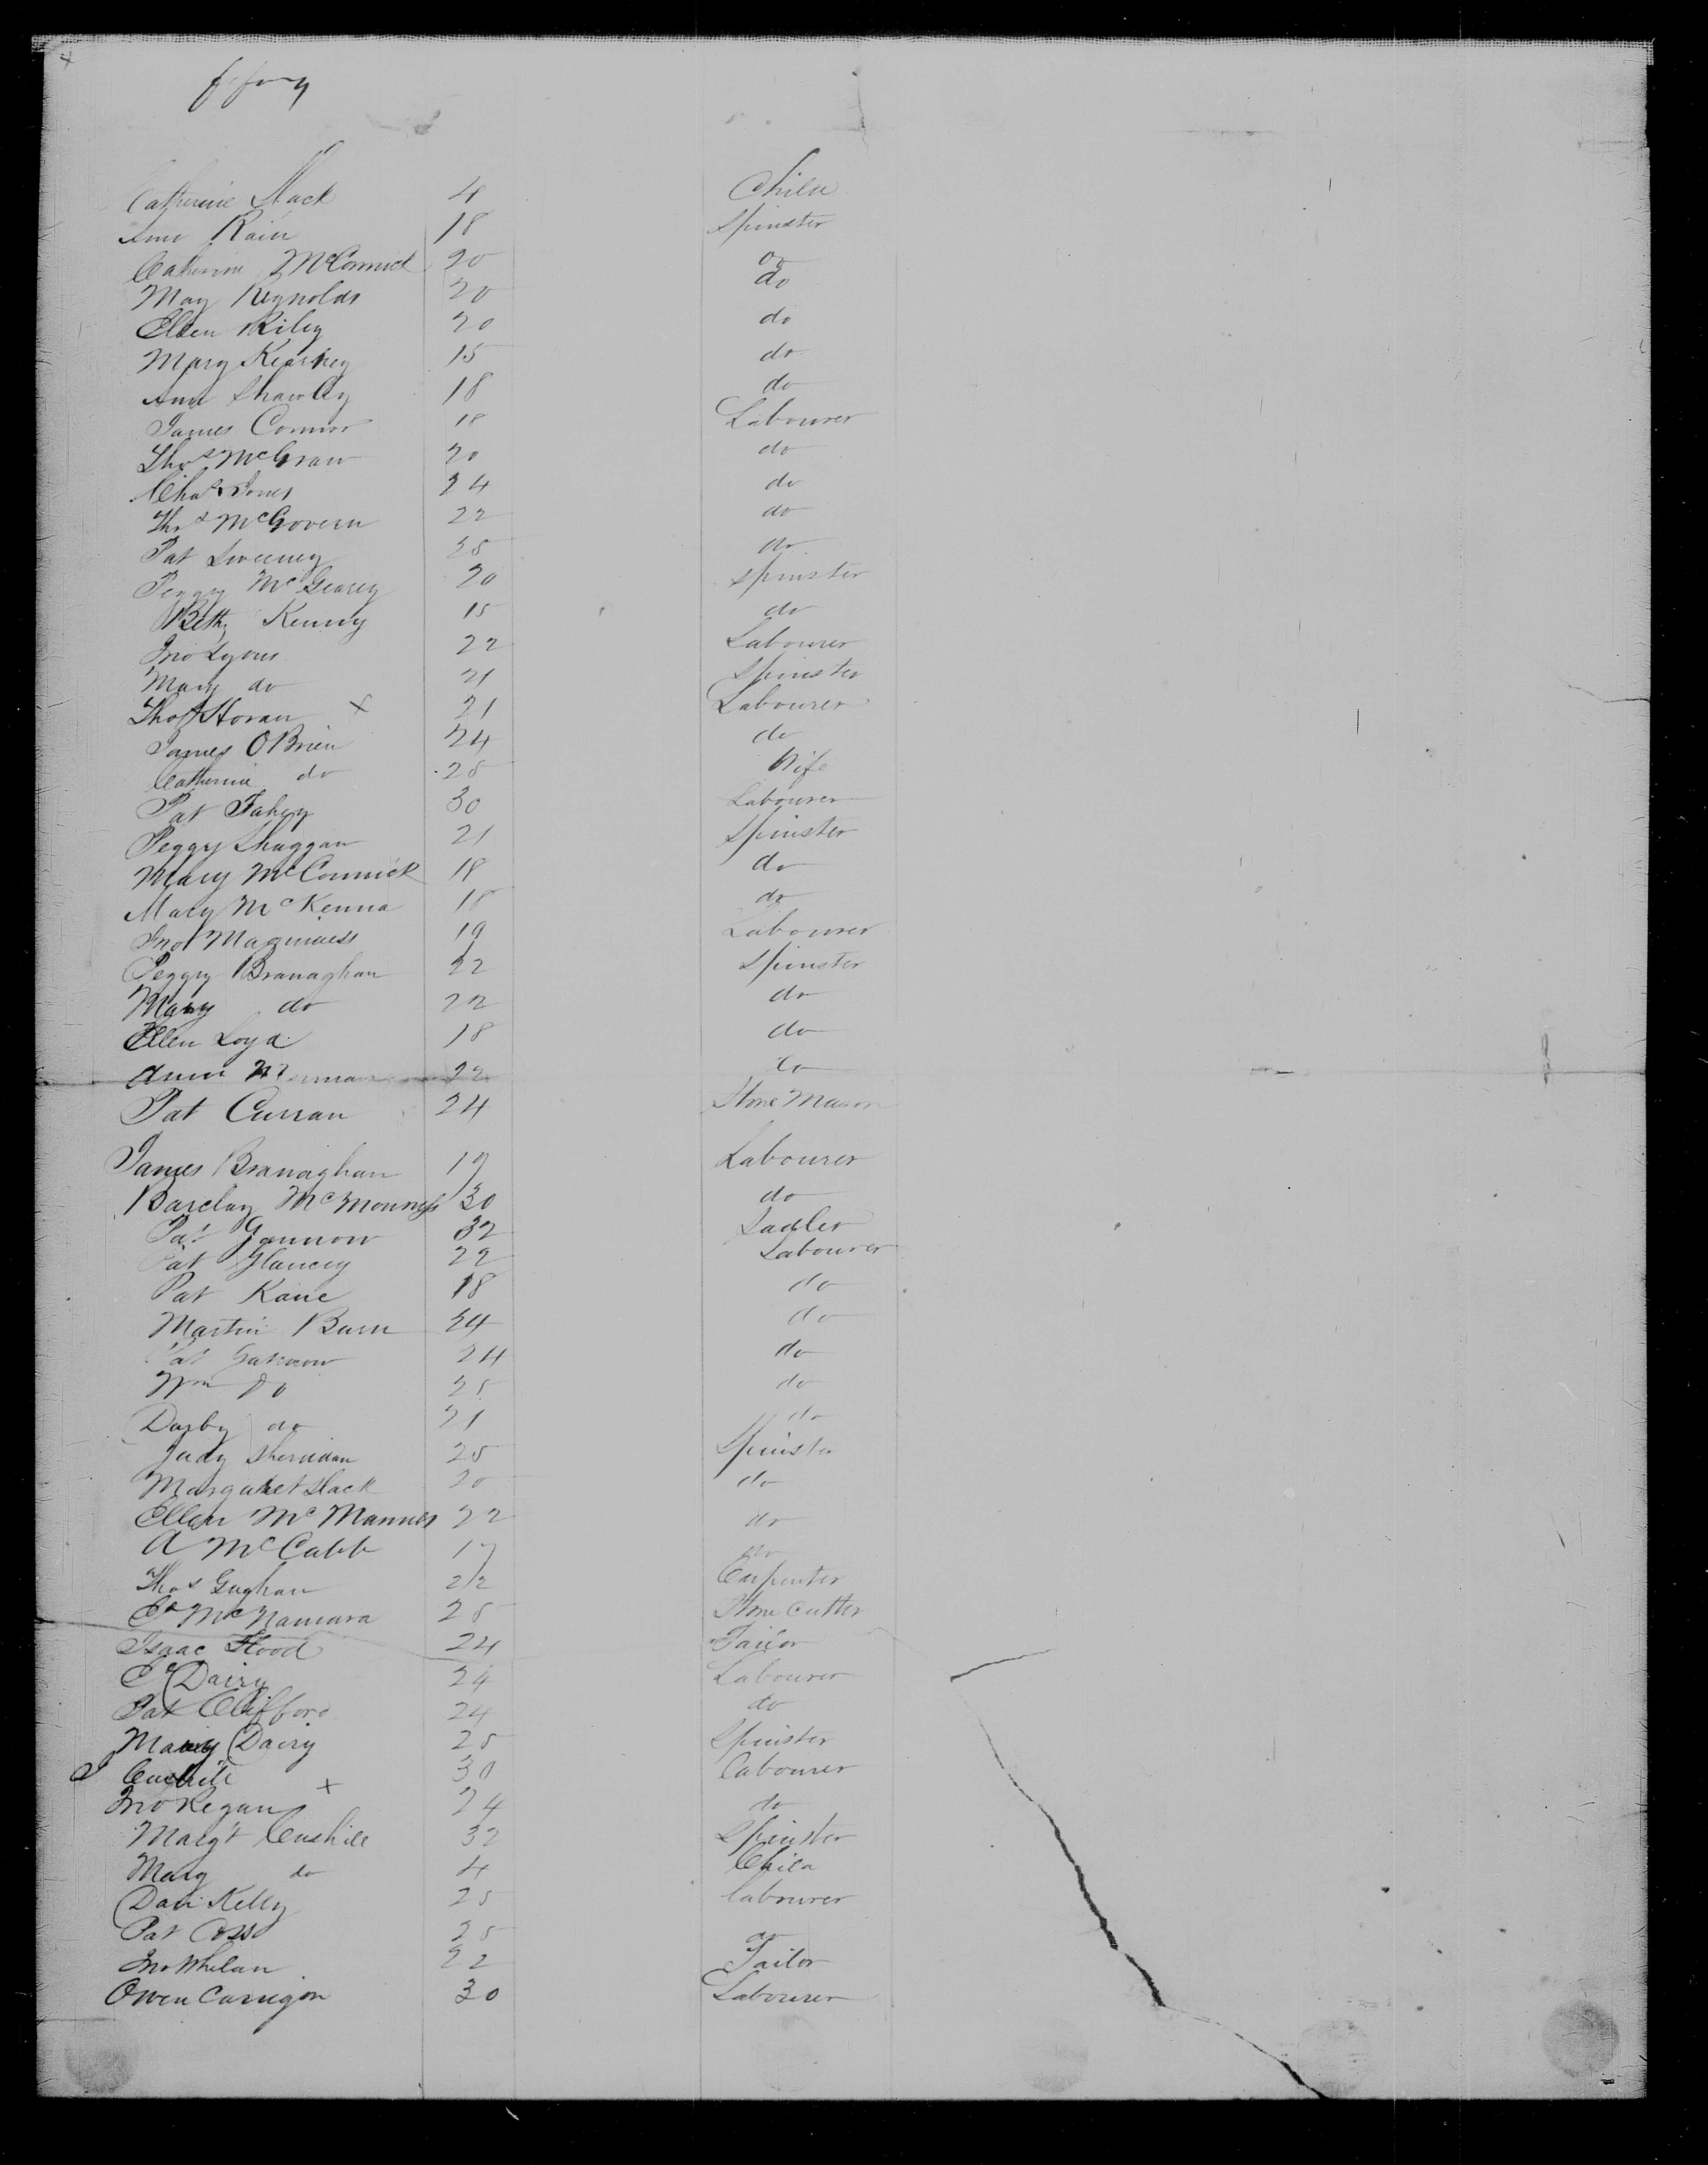 Catherine Slack 4 Child
Ann Rain 18 Spinster
Catherine McCormick 20 do
May Reynolds 20 do
Ellen Riley 20 do
Mary Kearney 15 do
Ann 18 do
James Connor 18 Labourer
Thos McGraw 20 do
Chas Jones 24 do
Thos McGovern 22 do
Pat Sweeney 25 do
Peggy McGearey 20 Spinster
Betty Kenny 15 do
Jno Lyons 22 Labourer
Mary do 21 Spinster
Thos Horan x 21 Labourer
James OBrien 24 do
Catherine do 25 Wife
Pat Fahey 30 Labourer
Peggy Shaggan 21 Spinster
Mary McCormick 18 do
Mary McKenna 18 do
Jno Maguiness 19 Labourer
Peggy Branaghan 22 Spinster
Mary do 22 do
Ellen Loyd 18 do
Ann 22 do
Pat Curran 24 Stone Mason
James Branaghan 17 Labourer
Barclay 30 do
Pat Gannow 32 Sadler
Pat Glancey 22 Labourer
Pat Kane 18 do
Martin Burn 24 do
Pat 24 do
Wm do 25 do
Darby do 21 do
Judy Sheridan 25 Spinster
Margaret Slack 20 do
Ellen McMannus 22 do
A McCabb 17 do
Thos Gaghan 22 Carpenter
Ed McNamara 25 Stone Cutter
Isaac Flood 24 Tailor
Dairy 24 Labourer
Pat Clifford 24 do
Mary Dairy 25 Spinster
30 Labourer
Jno Regan x 24 do
Marg't Cushile 32 Spinster
Mary do 4 Child
Dan Kelly 25 labourer
Pat 25 do
Jno Whelan 22 Tailor
Owen Carrigan 30 Labourer